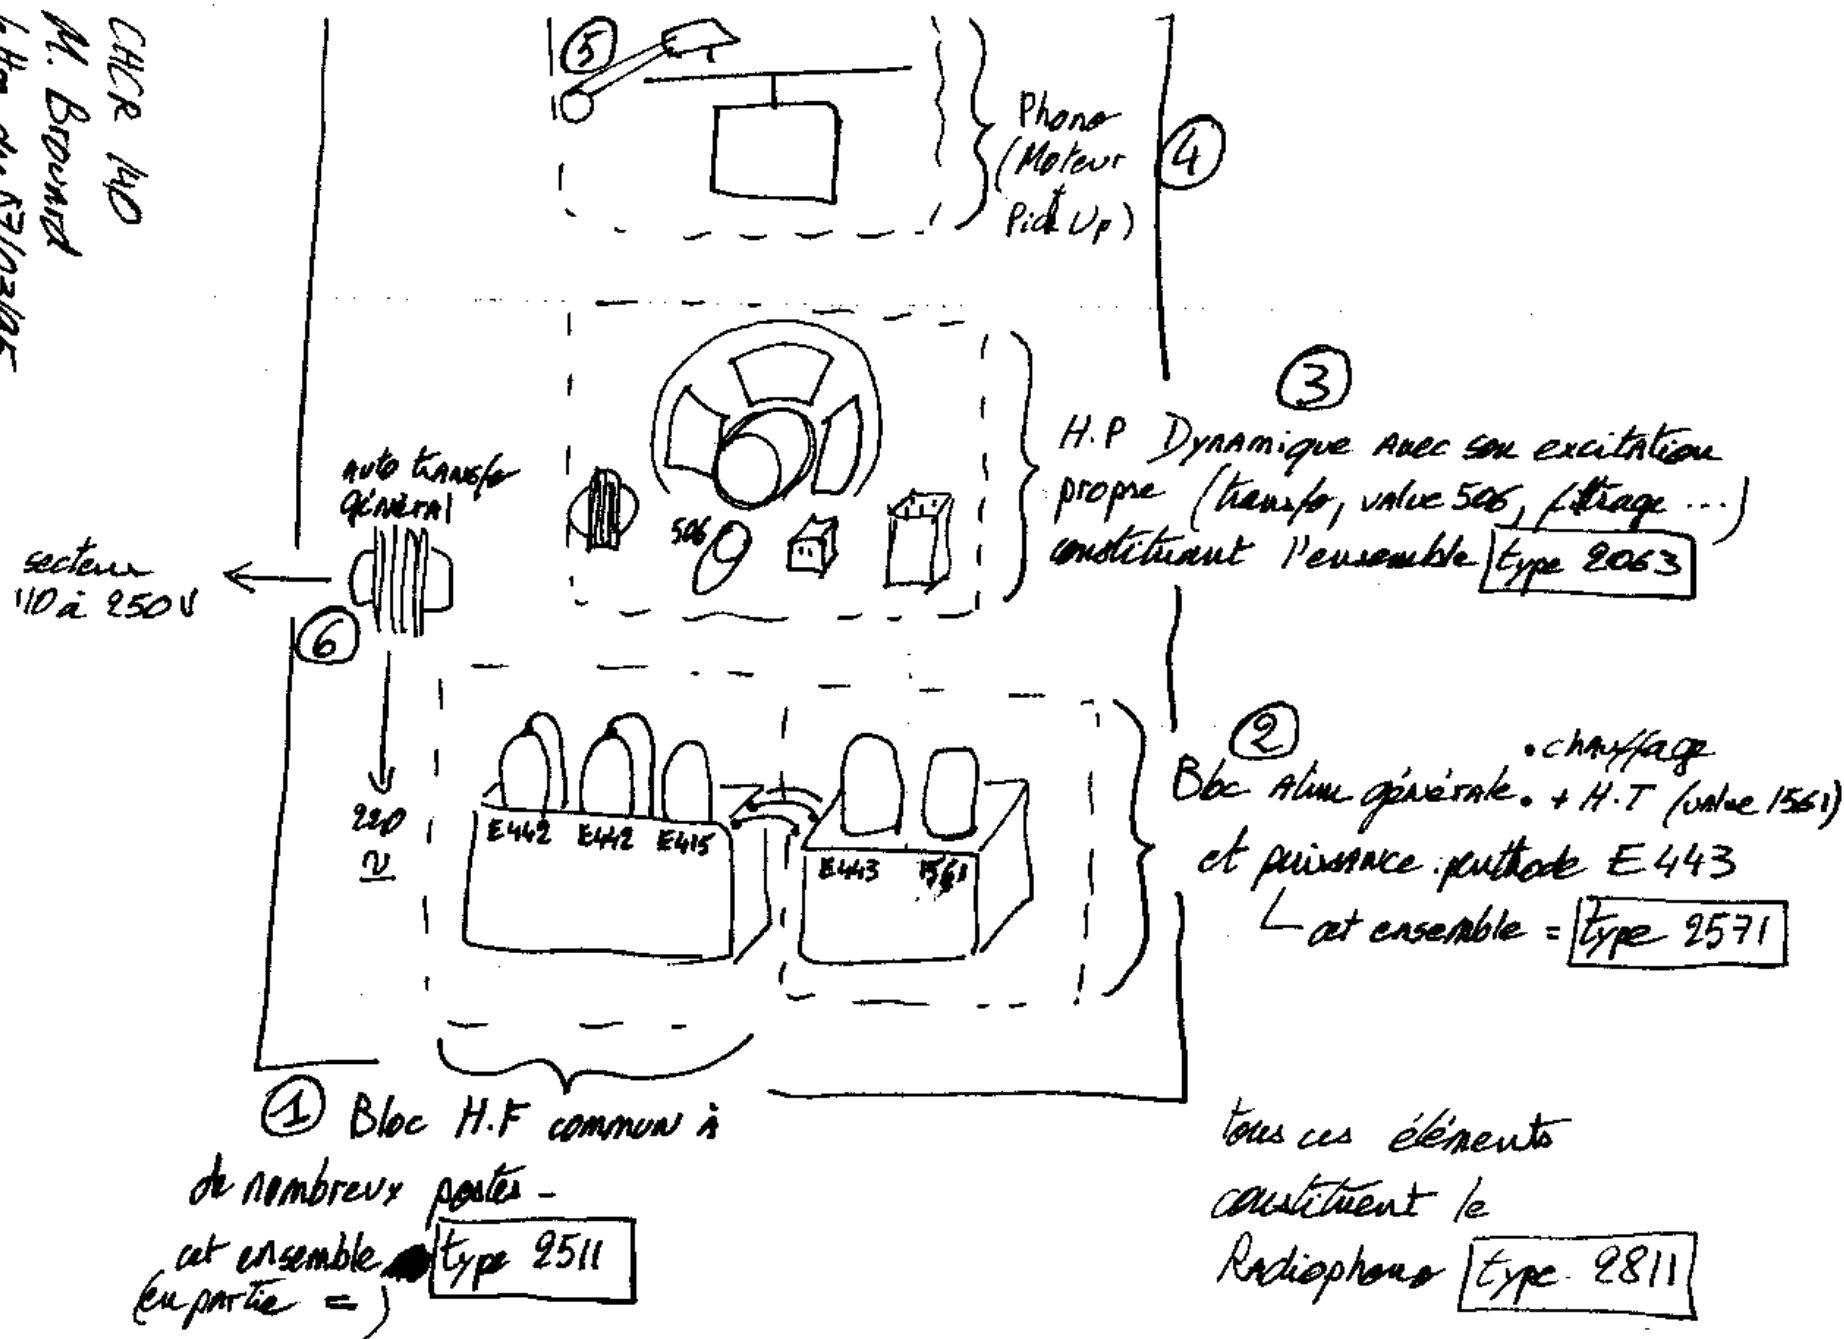 CHCR 140
M. Brouard
5
Phono
(Moteur
+
Pick Up)
4
3
H.P Dynamique avec son excitation
propre (transfo, valve 506, filtrage ...)
constituant l'ensemble type 2063
auto transfo
général
secteur
110 à 250 V
6
506
220
~
E442 E442 E415
E443 1561
2
Bloc alim générale. • chauffage
+ H.T (valve 1561)
et puissance penthode E443
cet ensemble = type 2571
1 Bloc H.F commun à
de nombreux postes -
cet ensemble type 2511
(en partie = )
tous ces éléments
constituent le
Radiophono type 2811